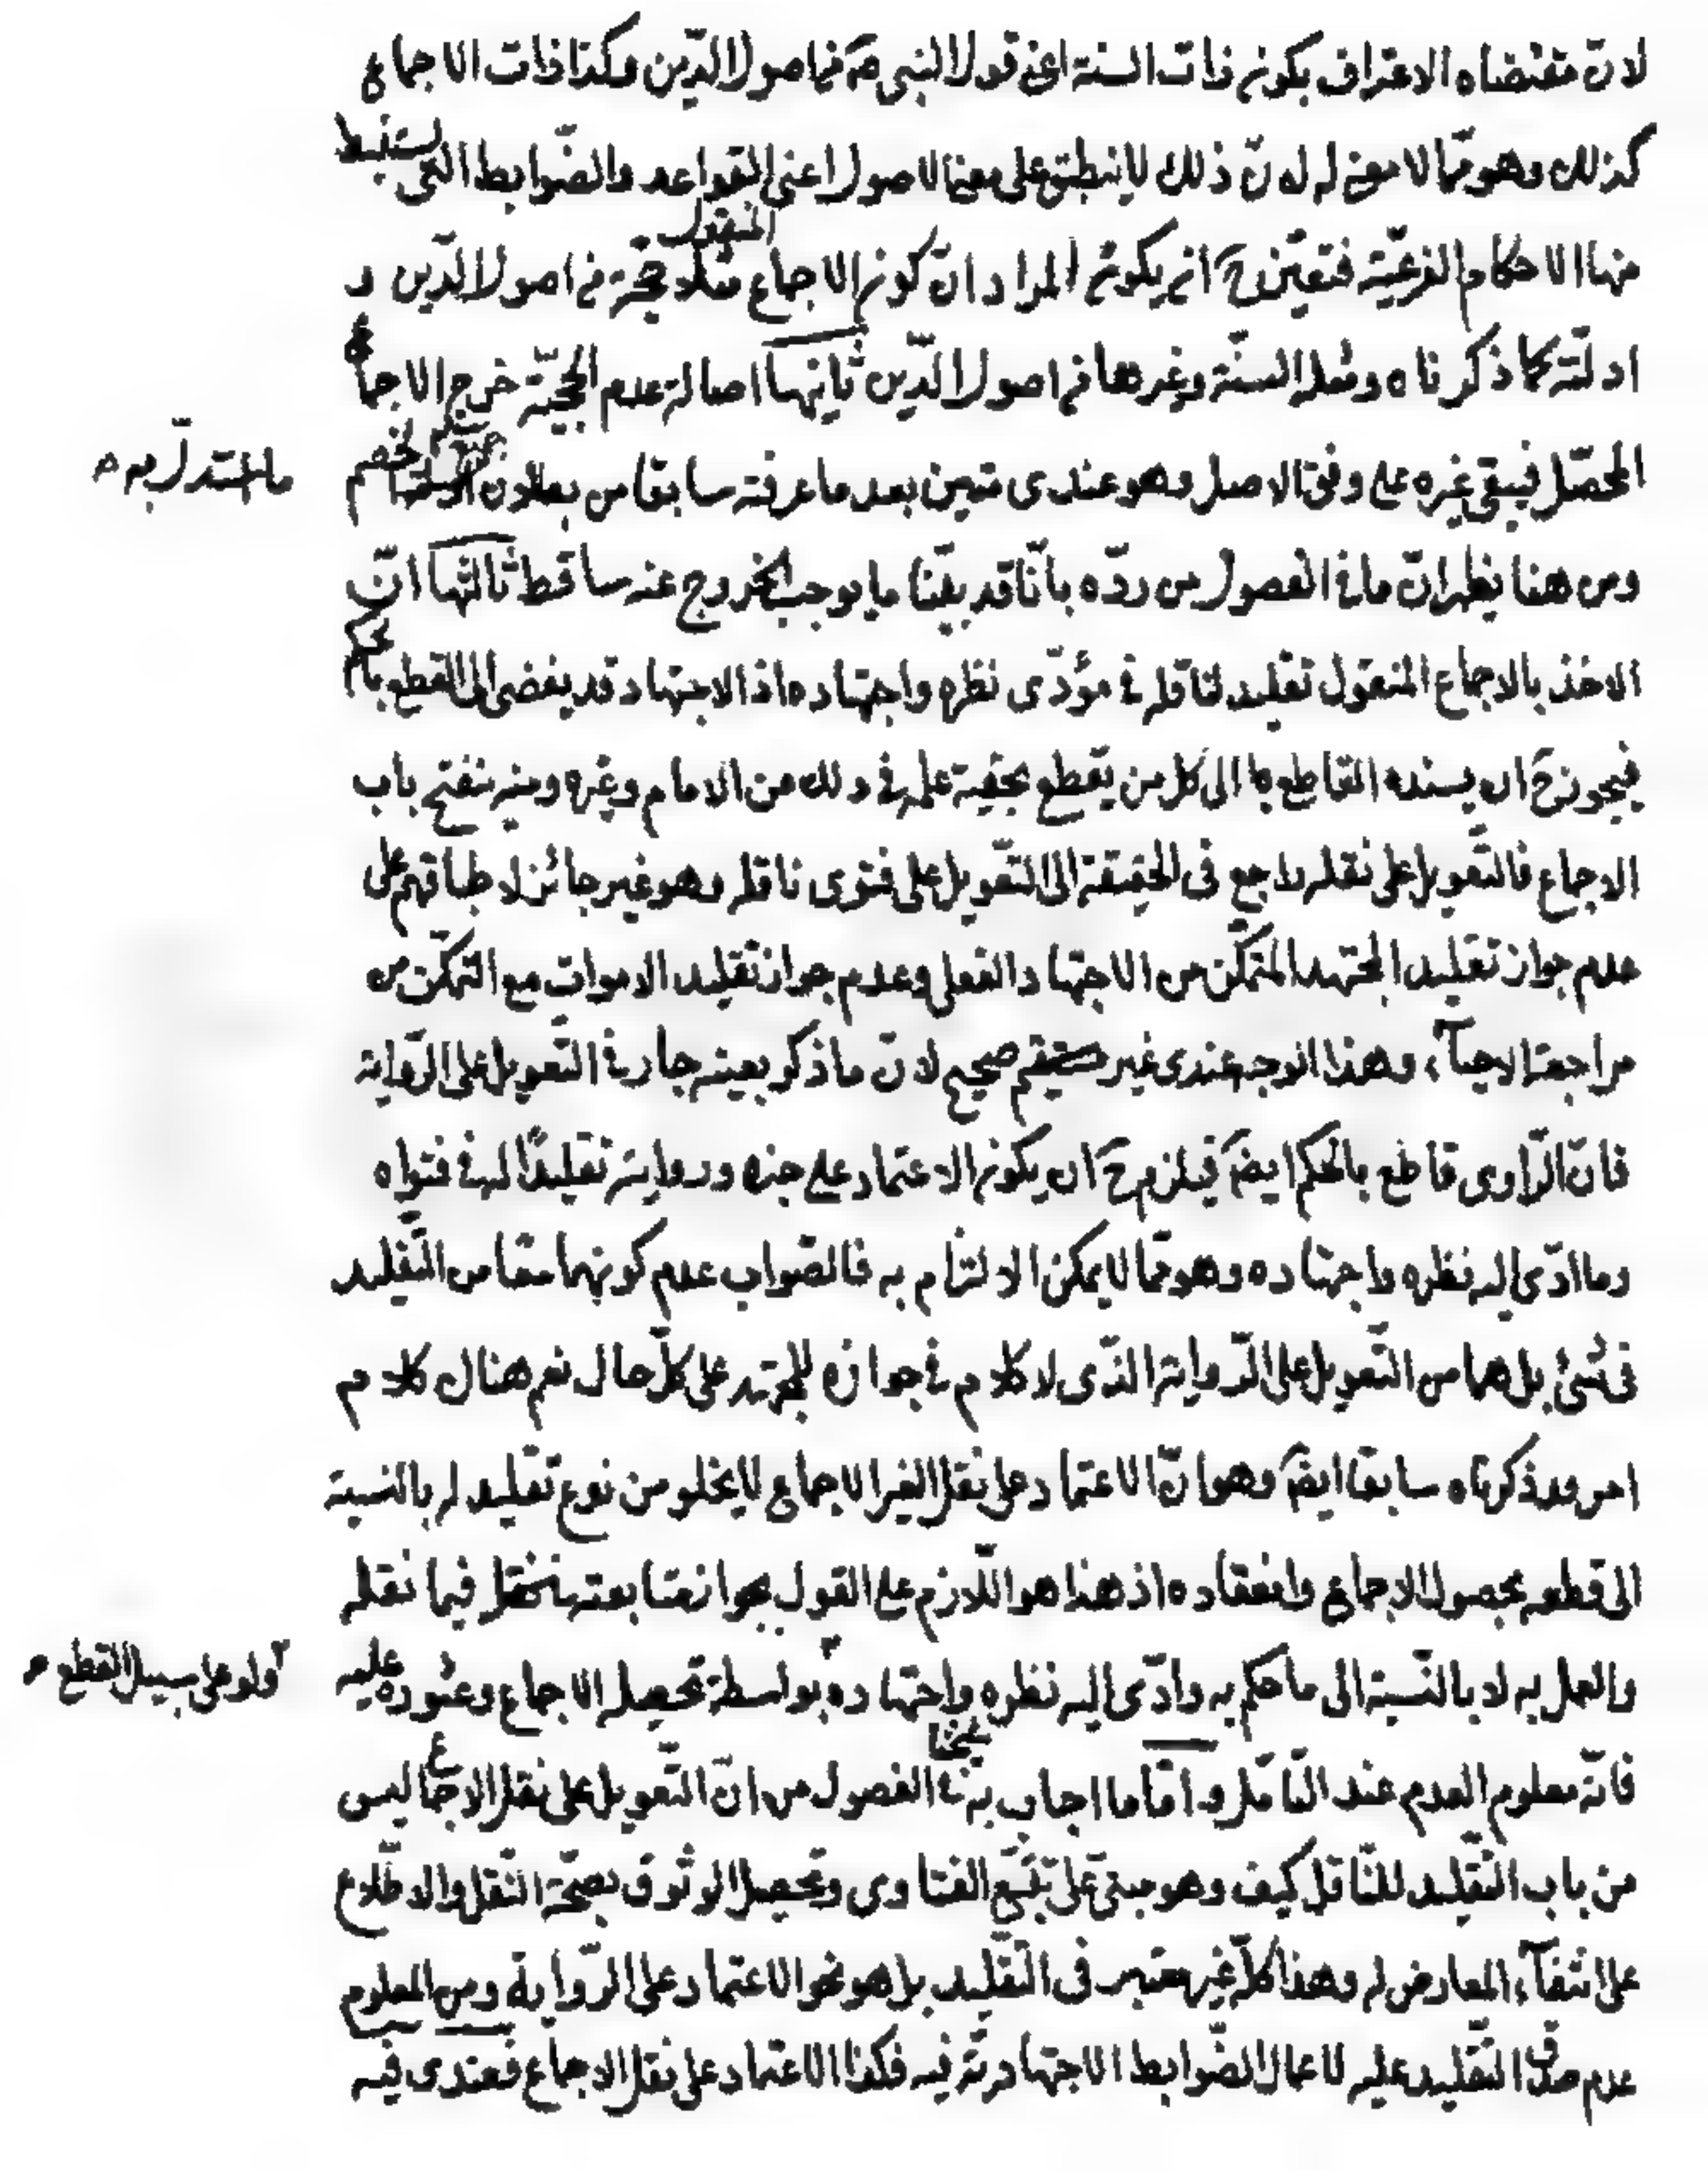 لانّ مقتضاه الاعتراف بكون ذات السنة اعنى قول النبى صۤ من اصول الدّين وكذا ذات الاجماع
كذلك وهو ممّا لا معنى له لانّ ذلك لا ينطبق على معنى الاصول اعنى القواعد والضّوابط التى يستنبط
منها الاحكام الفرعيّة فتعيّن حۤ ان يكون المراد انّ كون الاجماع المنقول مثلا حجّة من اصول الدّين و
ادلّته كما ذكرناه ومثله السنّة وغيرها من اصول الدّين ثانيها اصالة عدم الحجيّة خرج الاجماع
المحصّل فيبقى غيره على وفق الاصل وهو عندى متين بعد ما عرفته سابقا من بطلان ما استدلّ به الخصم
ومن هنا يظهر انّ ما فى الفصول من ردّه بانّا قد بيّنا ما يوجب الخروج عنه ساقط ثالثها انّ
الاخذ بالاجماع المنقول تقليد لناقله فى مؤدّى نظره واجتهاده اذ الاجتهاد قد يفضى الى القطع بالحكم
فيجوز حۤ ان يسنده القاطع به الى كل من يقطع بحقية علمه فى ذلك من الامام وغيره ومنه ينفتح باب
الاجماع فالتّعويل على نقله راجع فى الحقيقة الى التّعويل على فتوى ناقله وهو غير جائز لاطباقهم على
عدم جواز تقليد المجتهد المتمكّن من الاجتهاد الفعلى وعدم جواز تقليد الاموات مع التمكّن من
مراجعة الاحيآء وهذا الوجه عندى غير صحيح لانّ ما ذكر بعينه جار فى التّعويل على الرّواية
فانّ الرّاوى قاطع بالحكم ايضۤ فيلزم حۤ ان يكون الاعتماد على خبره وروايته تقليدًا له فى فتواه
وما ادّى اليه نظره واجتهاده وهو ممّا لا يمكن الالتزام به فالصّواب عدم كونهما معًا من التّقليد
فى شئ بل هما من التّعويل على الرّواية الذّى لا كلام فى جوازه للمجتهد على كلّ حال نعم هنا كلام
اخر قد ذكرناه سابقا ايضۤ وهو انّ الاعتماد على نقل الغير الاجماع لا يخلو من نوع تقليد له بالنسبة
الى قطعه بحصول الاجماع وانعقاده اذ هذا هو اللّازم على القول بجواز متابعته فيما نقله
والعمل به لا بالنّسبة الى ما حكم به وادّى اليه نظره واجتهاده ولو على سبيل القطع بواسطة تحصيله الاجماع وعثوره عليه
فانّه معلوم العدم عند التّامّل وامّا ما اجاب به فى الفصول من انّ التّعويل على نقل الاجماع ليس
من باب التّقليد للنّاقل كيف وهو مبنىّ على تتبّع الفتاوى وتحصيل الوثوق بصحّة النّقل والاطّلاع
على انتفآء المعارض له وهذا كلّه غير معتبر فى التّقليد بل هو نحو الاعتماد على الرّواية ومن المعلوم
عدم صدق التّقليد عليه لاعمال الضّوابط الاجتهاديّة فيه فكذا الاعتماد على نقل الاجماع فعندى فيه